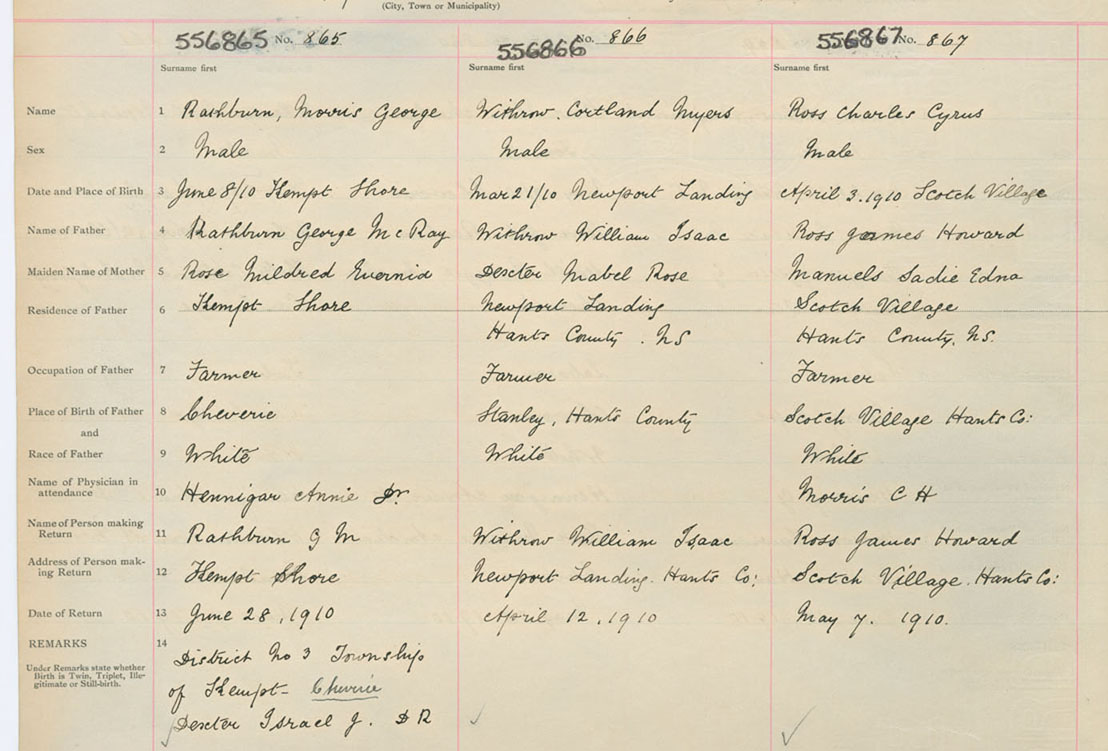 (City, Town or Municipality)
556865 No. 865 556866 No. 866 556867 No. 867
Surname first Surname first Surname first
Name 1 Rathburn, Morris George Withrow. Cortland Myers Ross Charles Cyrus
Sex 2 Male Male Male
Date and Place of Birth 3 June 8/10 Kempt Shore Mar 21/10 Newport Landing April 3. 1910 Scotch Village
Name of Father 4 Rathburn George McRay Withrow William Isaac Ross James Howard
Maiden Name of Mother 5 Rose Mildred Dexter Mabel Rose Manuels Sadie Edna
Residence of Father 6 Kempt Shore Newport Landing Scotch Village
Hants County. NS Hants County, NS.
Occupation of Father 7 Farmer Farmer Farmer
Place of Birth of Father 8 Cheverie Stanley, Hants County Scotch Village Hants Co:
and
Race of Father 9 White White White
Name of Physician in
attendance 10 Hennigar Annie Dr. Morris C H
Name of Person making
Return 11 Rathburn G M Withrow William Isaac Ross James Howard
Address of Person mak-
ing Return 12 Kempt Shore Newport Landing. Hants Co: Scotch Village. Hants Co:
Date of Return 13 June 28, 1910 April 12, 1910 May 7. 1910.
REMARKS 14
Under Remarks state whether
Birth is Twin, Triplet, Ille-
gitimate or Still-birth.
District No 3 Township
of Kempt - Cheverie
Dexter Israel J. D R